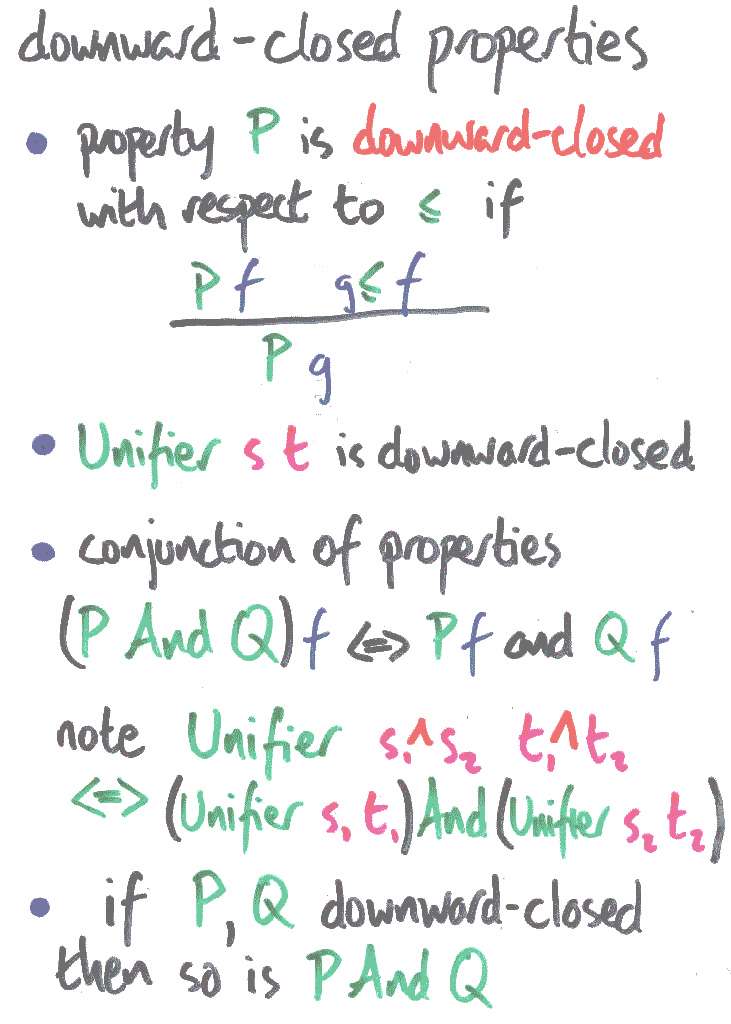 downward-closed properties
• property P is downward-closed
with respect to ≤ if
P f g≤f
P g
• Unifier s t is downward-closed
• conjunction of properties
(P And Q)f <=> Pf and Q f
note Unifier s₁^s₂ t₁^t₂
<=> (Unifier s₁ t₁) And (Unifier s₂ t₂)
• if P, Q downward-closed
then so is P And Q